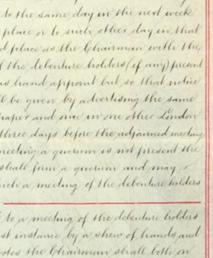 to the same day in the next week
place or to such other day in that
d place as the Chairman with the
f the debenture holders (if any) present
hand appoint but so that notice
ll be given by advertising the same
and one in one other London
three days before the adjourned meeting
meeting a quorum is not present the
shall form a quorum and may
a meeting of the debenture holders
to a meeting of the debenture holders
st instance by a show of hands and
votes the Chairman shall both on